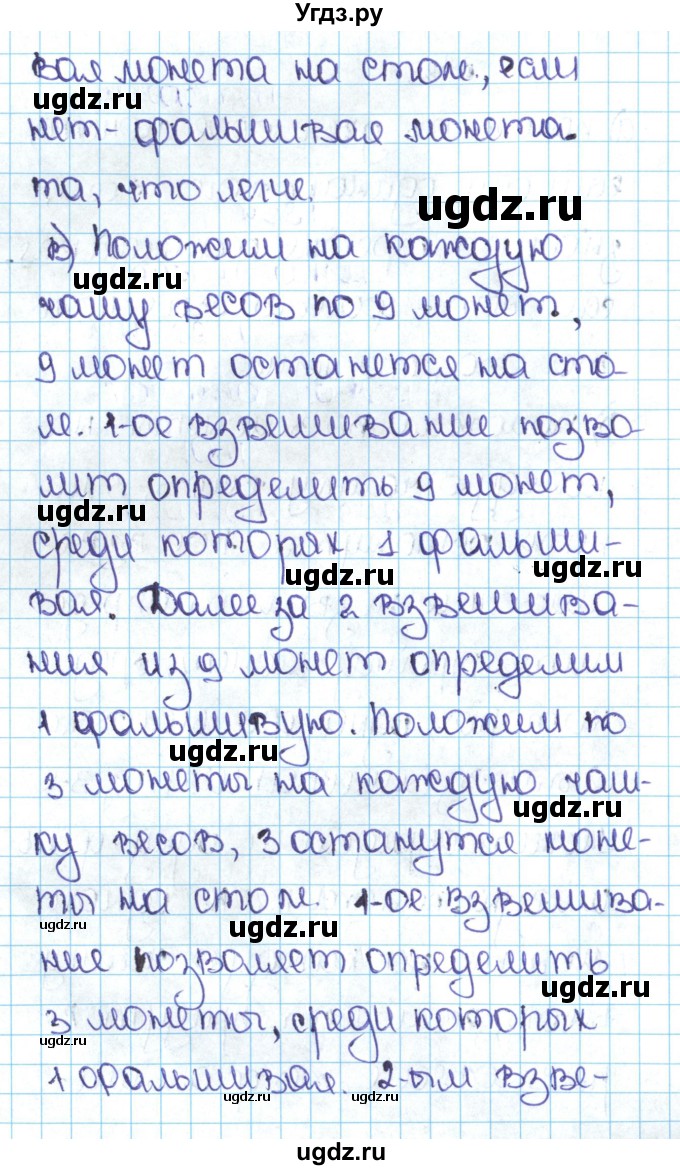 Угдз.ру
вая монета на столе, если
ugdz.ru
нет- фальшивая монета.
та, что легче.
ugdz.ru
в) Положим на каждую
ugdz.ru
чашу весов по 9 монет,
9 монет останется на сто-
ле. 1-ое взвешивание позво
лит определить 9 монет,
ugdz.ru
среди которых 1 фальши-
ugdz.ru
ugdz.ru
вая. Далее за 2 взвешива-
ния из 9 монет определим
1 фальшивую. Положим по
ugdz.ru
3 монеты на каждую чаш-
ugdz.ru
ку весов, 3 останутся моне-
ты на столе. 1-ое взвешива-
ugdz.ru
ugdz.ru
ние позваляет определить
ugdz.ru
3 монеты, среди которых
ugdz.ru
1 фальшивая. 2-ым взве-
ugdz.ru
ugdz.ru
ugdz.ru